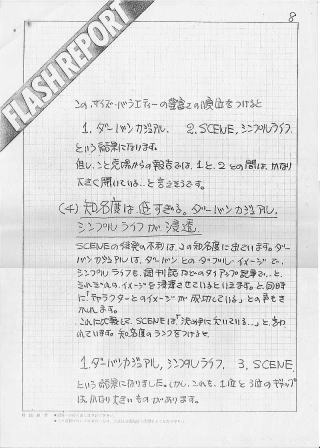 FLASH REPORT
8
この、サイズ・バラエティーの豊富さの順位をつけると
1. ダーバンカジュアル、 2. SCENE, シンプルライフ
という結果になります。
但し、この売場からの報告では、1と、2との間は、かなり
大きく開いている…と言えそうです。
(4) 知名度は低すぎる。ダーバンカジュアル、
シンプルライフが浸透
SCENEの後発の不利は、この知名度に出ています。ダー
バンカジュアルは、ダーバンとのダブル・イメージで、
シンプルライフも、週刊誌などのタイアップ記事で、と、
それぞれの、イメージを浸透させているといえます。と同時
に「キャラクターとのイメージが成功している」との声もき
かれます。
これに比較して、SCENEは「決め手に欠いている…」と言わ
れています。知名度のランクをつけると、
1. ダーバンカジュアル, シンプルライフ. 3. SCENE.
という結果になりました。しかし、これも、1位と3位のギャップ
は、かなり大きいものがあります。